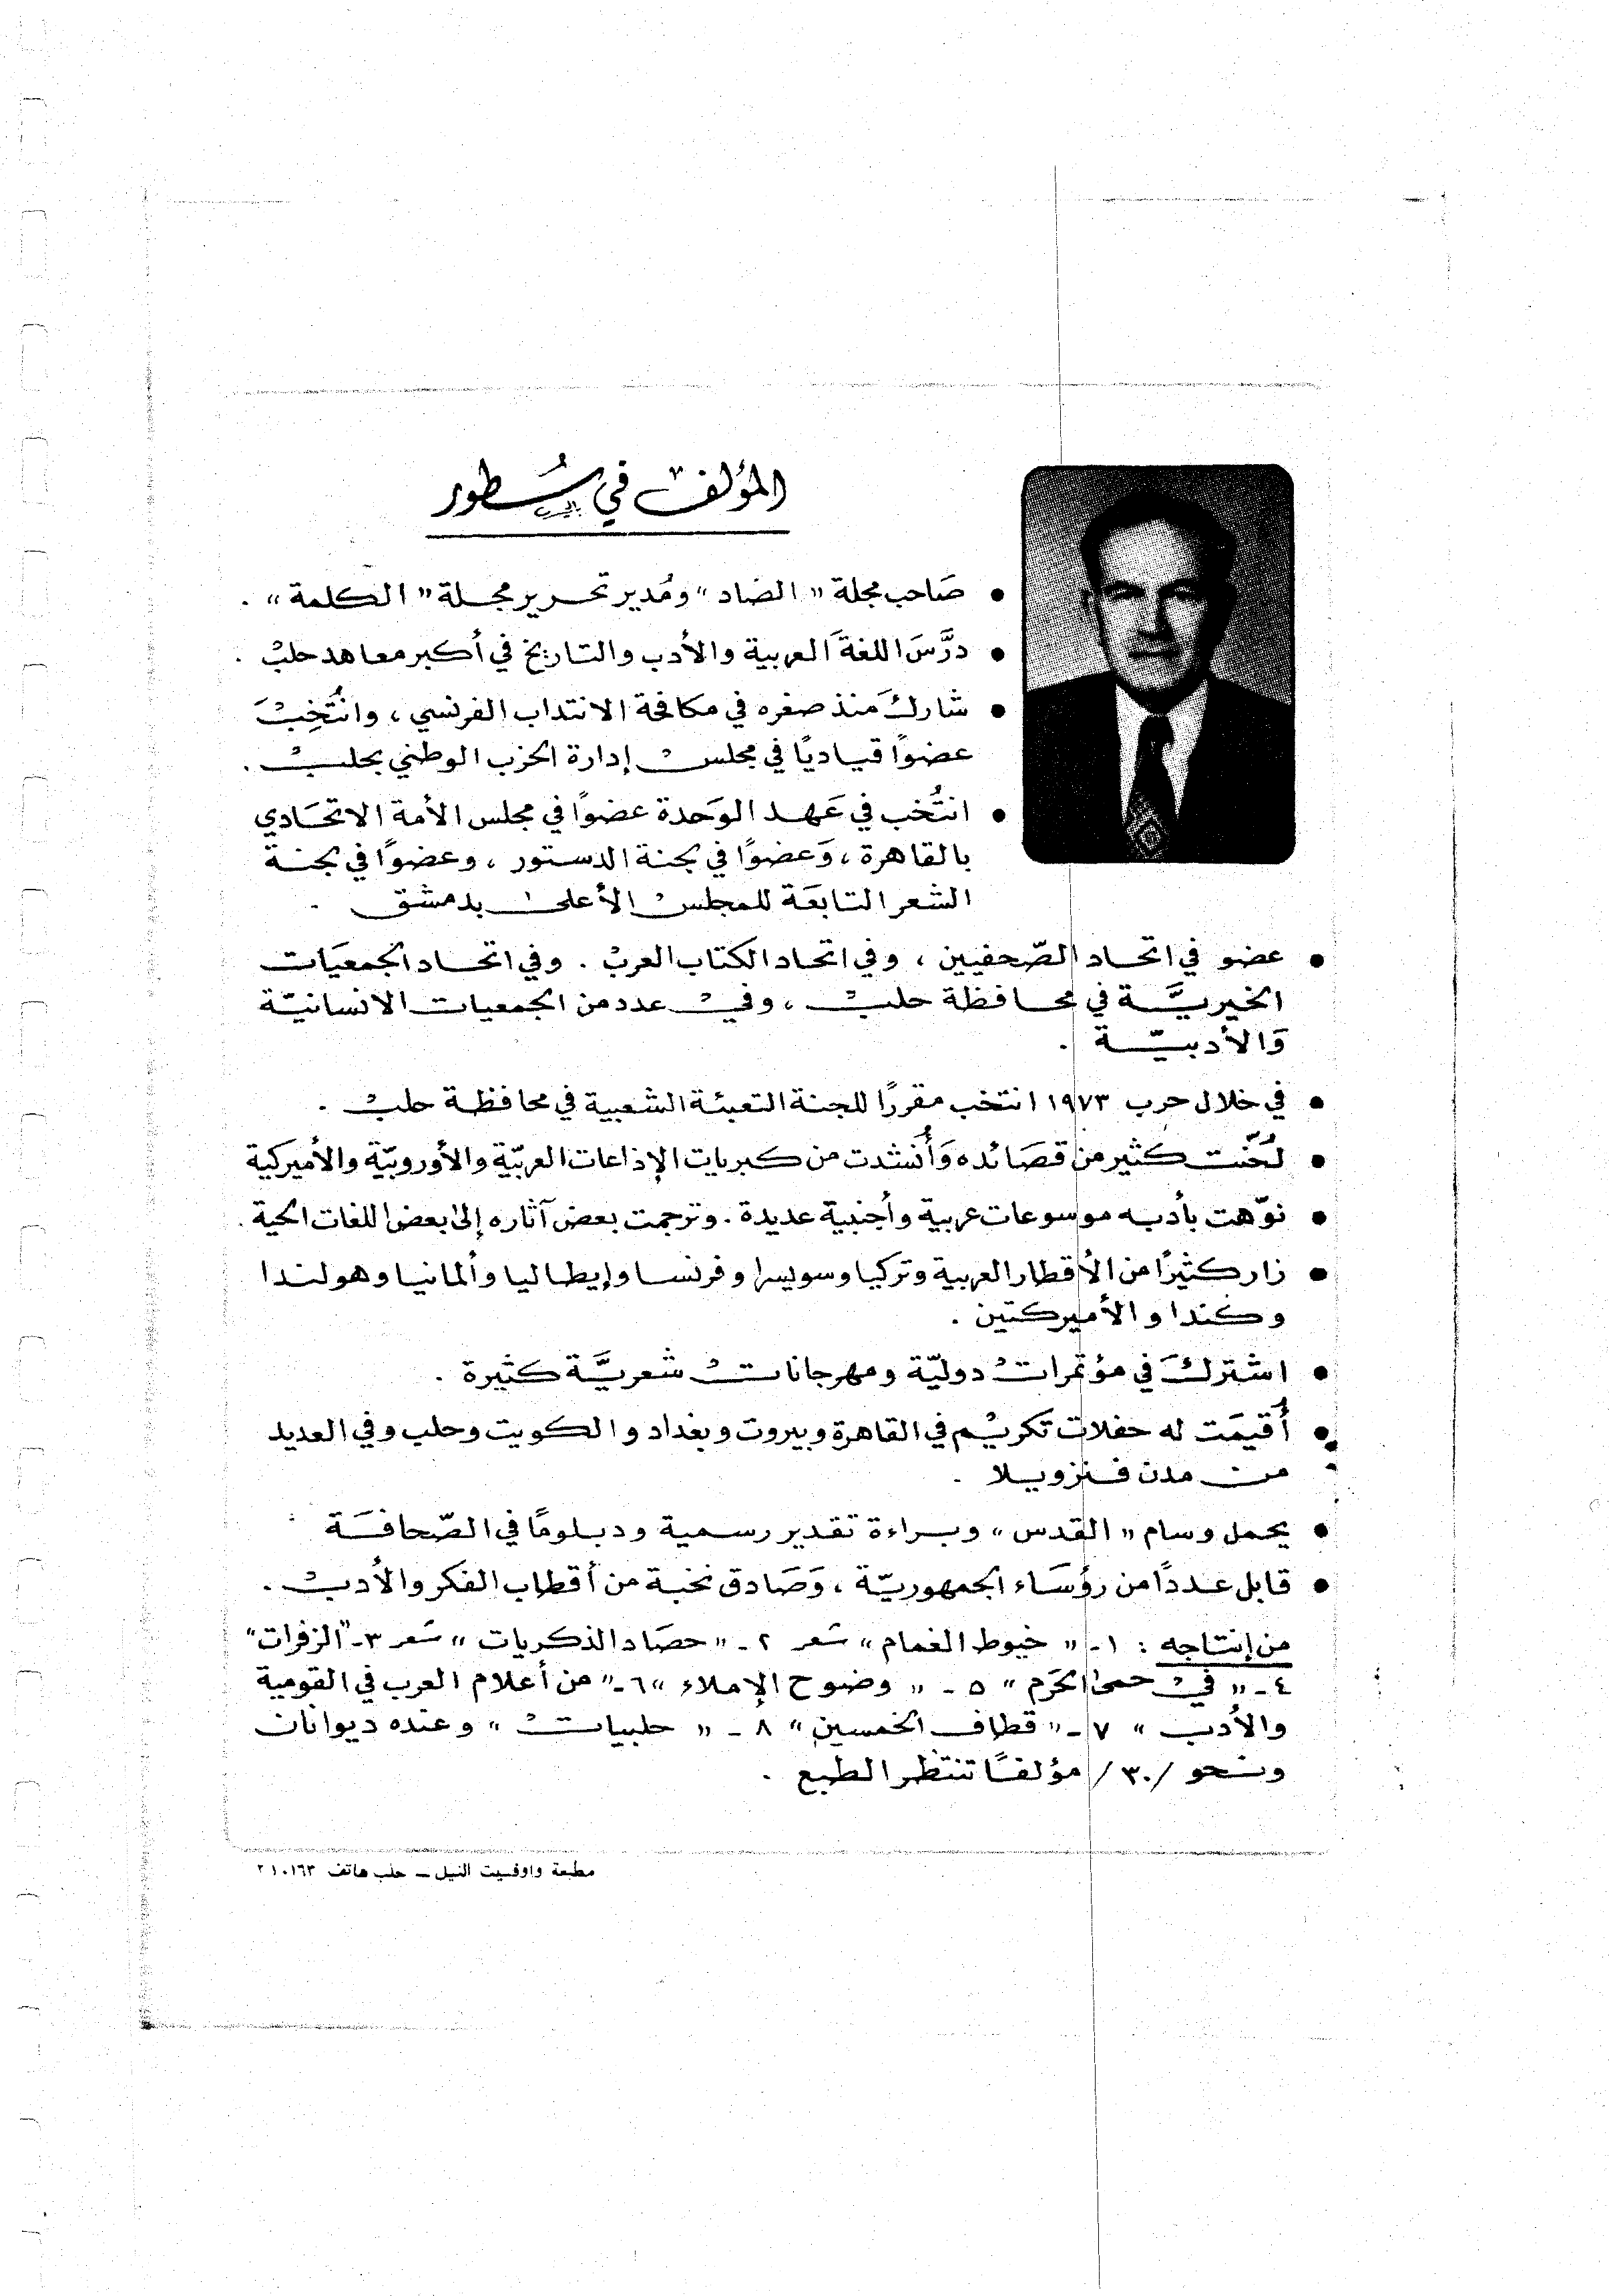 المؤلف في سُطور
• صَاحب مجلة "الضاد" ومُدير تحرير مجلة "الكلمة".
• درَّسَ اللغةَ العربية والأدب والتاريخ في أكبر معاهد حلب.
• شاركَ منذ صغره في مكافحة الانتداب الفرنسي، وانتُخِبَ
عضوًا قياديًا في مجلس إدارة الحزب الوطني بحلب.
• انتُخب في عَهد الوَحدة عضوًا في مجلس الأمة الاتحَادي
بالقاهرة، وَعضوًا في لجنة الدستور، وعضوًا في لجنة
الشعر التابعَة للمجلس الأعلى بدمشق.
• عضو في اتحاد الصّحفيين، وفي اتحاد الكتاب العرب. وفي اتحاد الجمعيَات
الخيريَّة في محافظة حلب، وفي عدد من الجمعيات الانسانيّة
وَالأدبيّة.
• في خلال حرب ١٩٧٣ انتخب مقررًا للجنة التعبئة الشعبية في محافظة حلب.
• لُحّنت كثير من قصَائده وَأُنشدت من كبريات الإذاعات العربيّة والأوروبيّة والأميركية
• نوّهت بأدبه موسوعات عربية وأجنبية عديدة. وترجمت بعض آثاره إلى بعض اللغات الحية.
• زار كثيرًا من الأقطار العربية وتركيا وسويسرا وفرنسا وإيطاليا وألمانيا وهولندا
وكندا والأميركتين.
• اشتركَ في مؤتمرات دوليّة ومهرجانات شعريَّة كثيرة.
• أُقيمَت له حفلات تكريم في القاهرة وبيروت وبغداد والكويت وحلب وفي العديد
من مدن فنزويلا.
• يحمل وسام "القدس" وبراءة تقدير رسمية ودبلومًا في الصّحافَة
• قابل عددًا من رؤسَاء الجمهوريّة، وَصَادق نخبة من أقطاب الفكر والأدب.
من إنتاجه: ١ـ "خيوط الغمام" شعر ٢ـ "حصَاد الذكريات" شعر ٣ـ "الزفرات"
٤ـ "في حمى الحَرم" ٥ـ "وضوح الإملاء" ٦ـ "من أعلام العرب في القومية
والأدب" ٧ـ "قطاف الخمسين" ٨ـ "حلبيات" وعنده ديوانان
ونحو /٣٠/ مؤلفًا تنتظر الطبع.
مطبعة واوفسيت النيل ـ حلب هاتف ٢١٠١٦٣